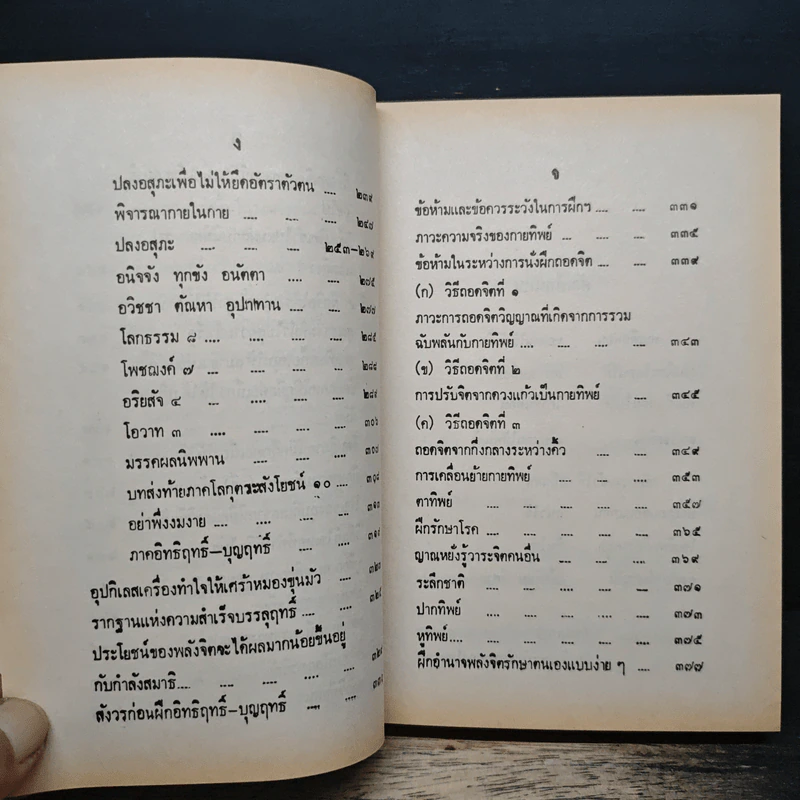 ง
ปลงอสุภะเพื่อไม่ให้ยึดอัตราตัวตน .... ๒๓๙
พิจารณากายในกาย .... .... .... ๒๔๗
ปลงอสุภะ .... .... .... ๒๕๓–๒๖๙
อนิจจัง ทุกขัง อนัตตา .... .... ๒๗๕
อวิชชา ตัณหา อุปาทาน .... .... ๒๗๗
โลกธรรม ๘ .... .... .... .... ๒๘๕
โพชฌงค์ ๗ ... .... .... .... ๒๘๘
อริยสัจ ๔ .... .... .... .... ๒๘๙
โอวาท ๓ .... .... .... .... ๓๐๖
มรรคผลนิพพาน .... .... .... ๓๐๗
บทส่งท้ายภาคโลกุตระสังโยชน์ ๑๐ .... ๓๐๘
อย่าพึ่งงมงาย .... .... .... ๓๑๐
ภาคอิทธิฤทธิ์–บุญฤทธิ์ .... ....
อุปกิเลสเครื่องทำใจให้เศร้าหมองขุ่นมัว ....
รากฐานแห่งความสำเร็จบรรลุฤทธิ์ .... ....
ประโยชน์ของพลังจิตจะได้ผลมากน้อยขึ้นอยู่
กับกำลังสมาธิ .... .... .... ....
สังวรก่อนฝึกอิทธิฤทธิ์–บุญฤทธิ์ .... ....
จ
ข้อห้ามและข้อควรระวังในการฝึกฯ .... .... ๓๓๑
ภาวะความจริงของกายทิพย์ ... .... .... ๓๓๕
ข้อห้ามในระหว่างการนั่งฝึกถอดจิต .... .... ๓๓๙
(ก) วิธีถอดจิตที่ ๑
ภาวะการถอดจิตวิญญาณที่เกิดจากการรวม
ฉับพลันกับกายทิพย์ .... .... .... ๓๔๓
(ข) วิธีถอดจิตที่ ๒
การปรับจิตจากดวงแก้วเป็นกายทิพย์ .... ๓๔๕
(ค) วิธีถอดจิตที่ ๓
ถอดจิตจากกึ่งกลางระหว่างคิ้ว .... .... ๓๔๙
การเคลื่อนย้ายกายทิพย์ .... .... .... ๓๕๓
ตาทิพย์ .... .... .... .... ๓๕๗
ฝึกรักษาโรค .... .... .... .... ๓๖๕
ญาณหยั่งรู้วาระจิตคนอื่น .... .... .... ๓๖๙
ระลึกชาติ .... .... .... .... ๓๗๑
ปากทิพย์ .... .... .... .... ๓๗๓
หูทิพย์ .... .... .... .... .... ๓๗๕
ฝึกอำนาจพลังจิตรักษาตนเองแบบง่าย ๆ .... ๓๗๗